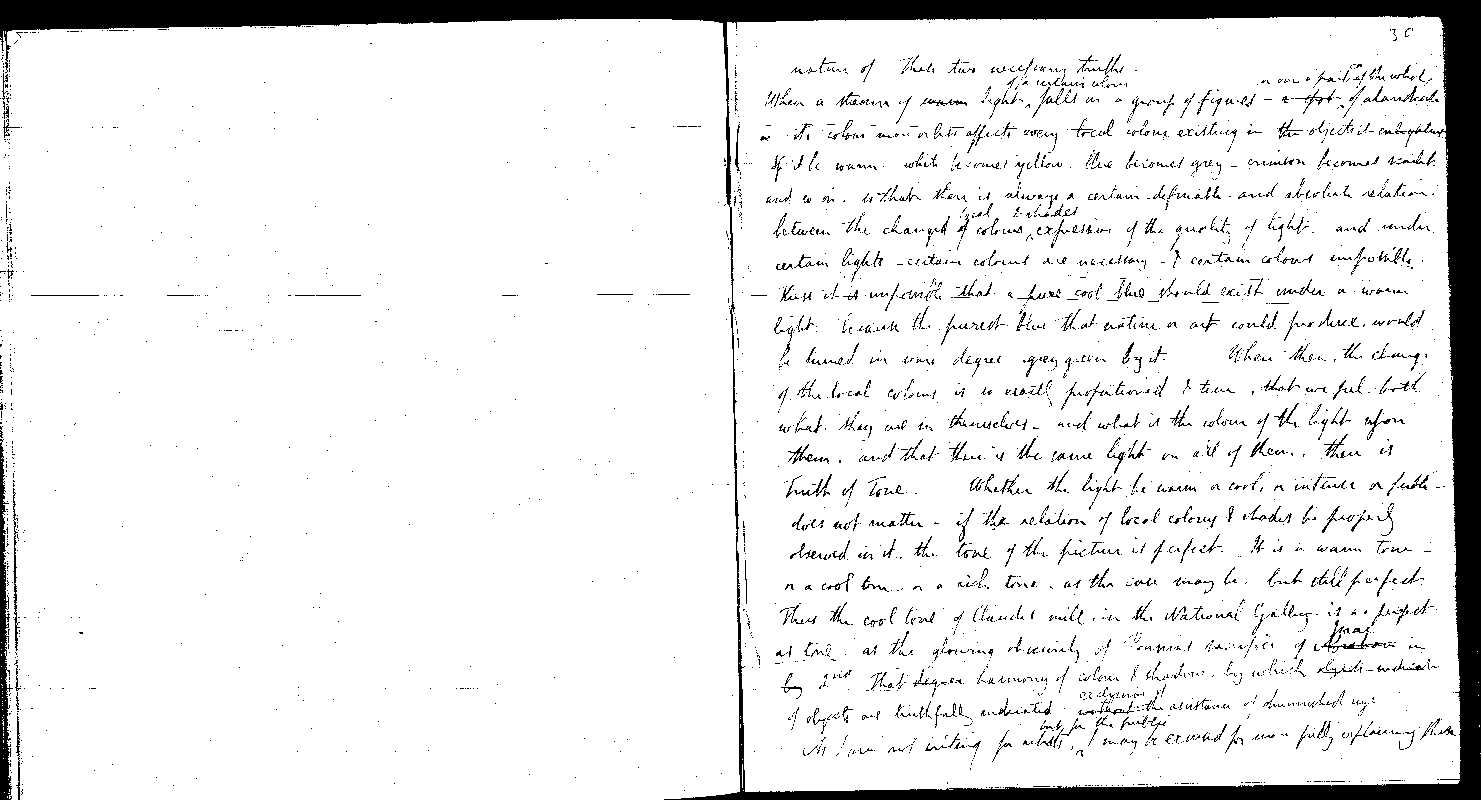 30
nature of these two necessary truths.
of a certain colour
or on a part of the whole
When a stream of warm light, falls on a group of figures – a spot of
its colour more or less affects every local colour existing in the objects it
If it be warm. white becomes yellow. blue becomes grey – crimson becomes scarlet
and so on. so that there is always a certain definable. and absolute relation.
local & shades
between the changed of colours expression of the quality of light. and under
certain lights – certain colours are necessary – & certain colours impossible.
thus it is impossible that a pure cool blue should exist under a warm
light. because the purest blue that nature or art could produce. would
be turned in some degree grey green by it. When then, the change
of the local colours is so exactly proportioned & true, that we feel both
what they are in themselves – and what is the colour of the light upon
them. and that there is the same light on all of them. there is
truth of tone. Whether the light be warm or cool, or intense or feeble –
does not matter – if the relation of local colours & shades be properly
observed in it. the tone of the picture is perfect. It is a warm tone –
or a cool tone. or a rich tone. as the case may be. but still perfect.
Thus the cool tone of Claudes mill. in the National Gallery is as perfect
Isaac
as tone. as the glowing obscurity of Poussins sacrifice of Abraham in
by 2nd That degree harmony of colour & shadow. by which objects
exclusive of
of objects are truthfully indicated without the assistance of diminished
but for the public
As I am not writing for artists, I may be excused for more fully explaining these